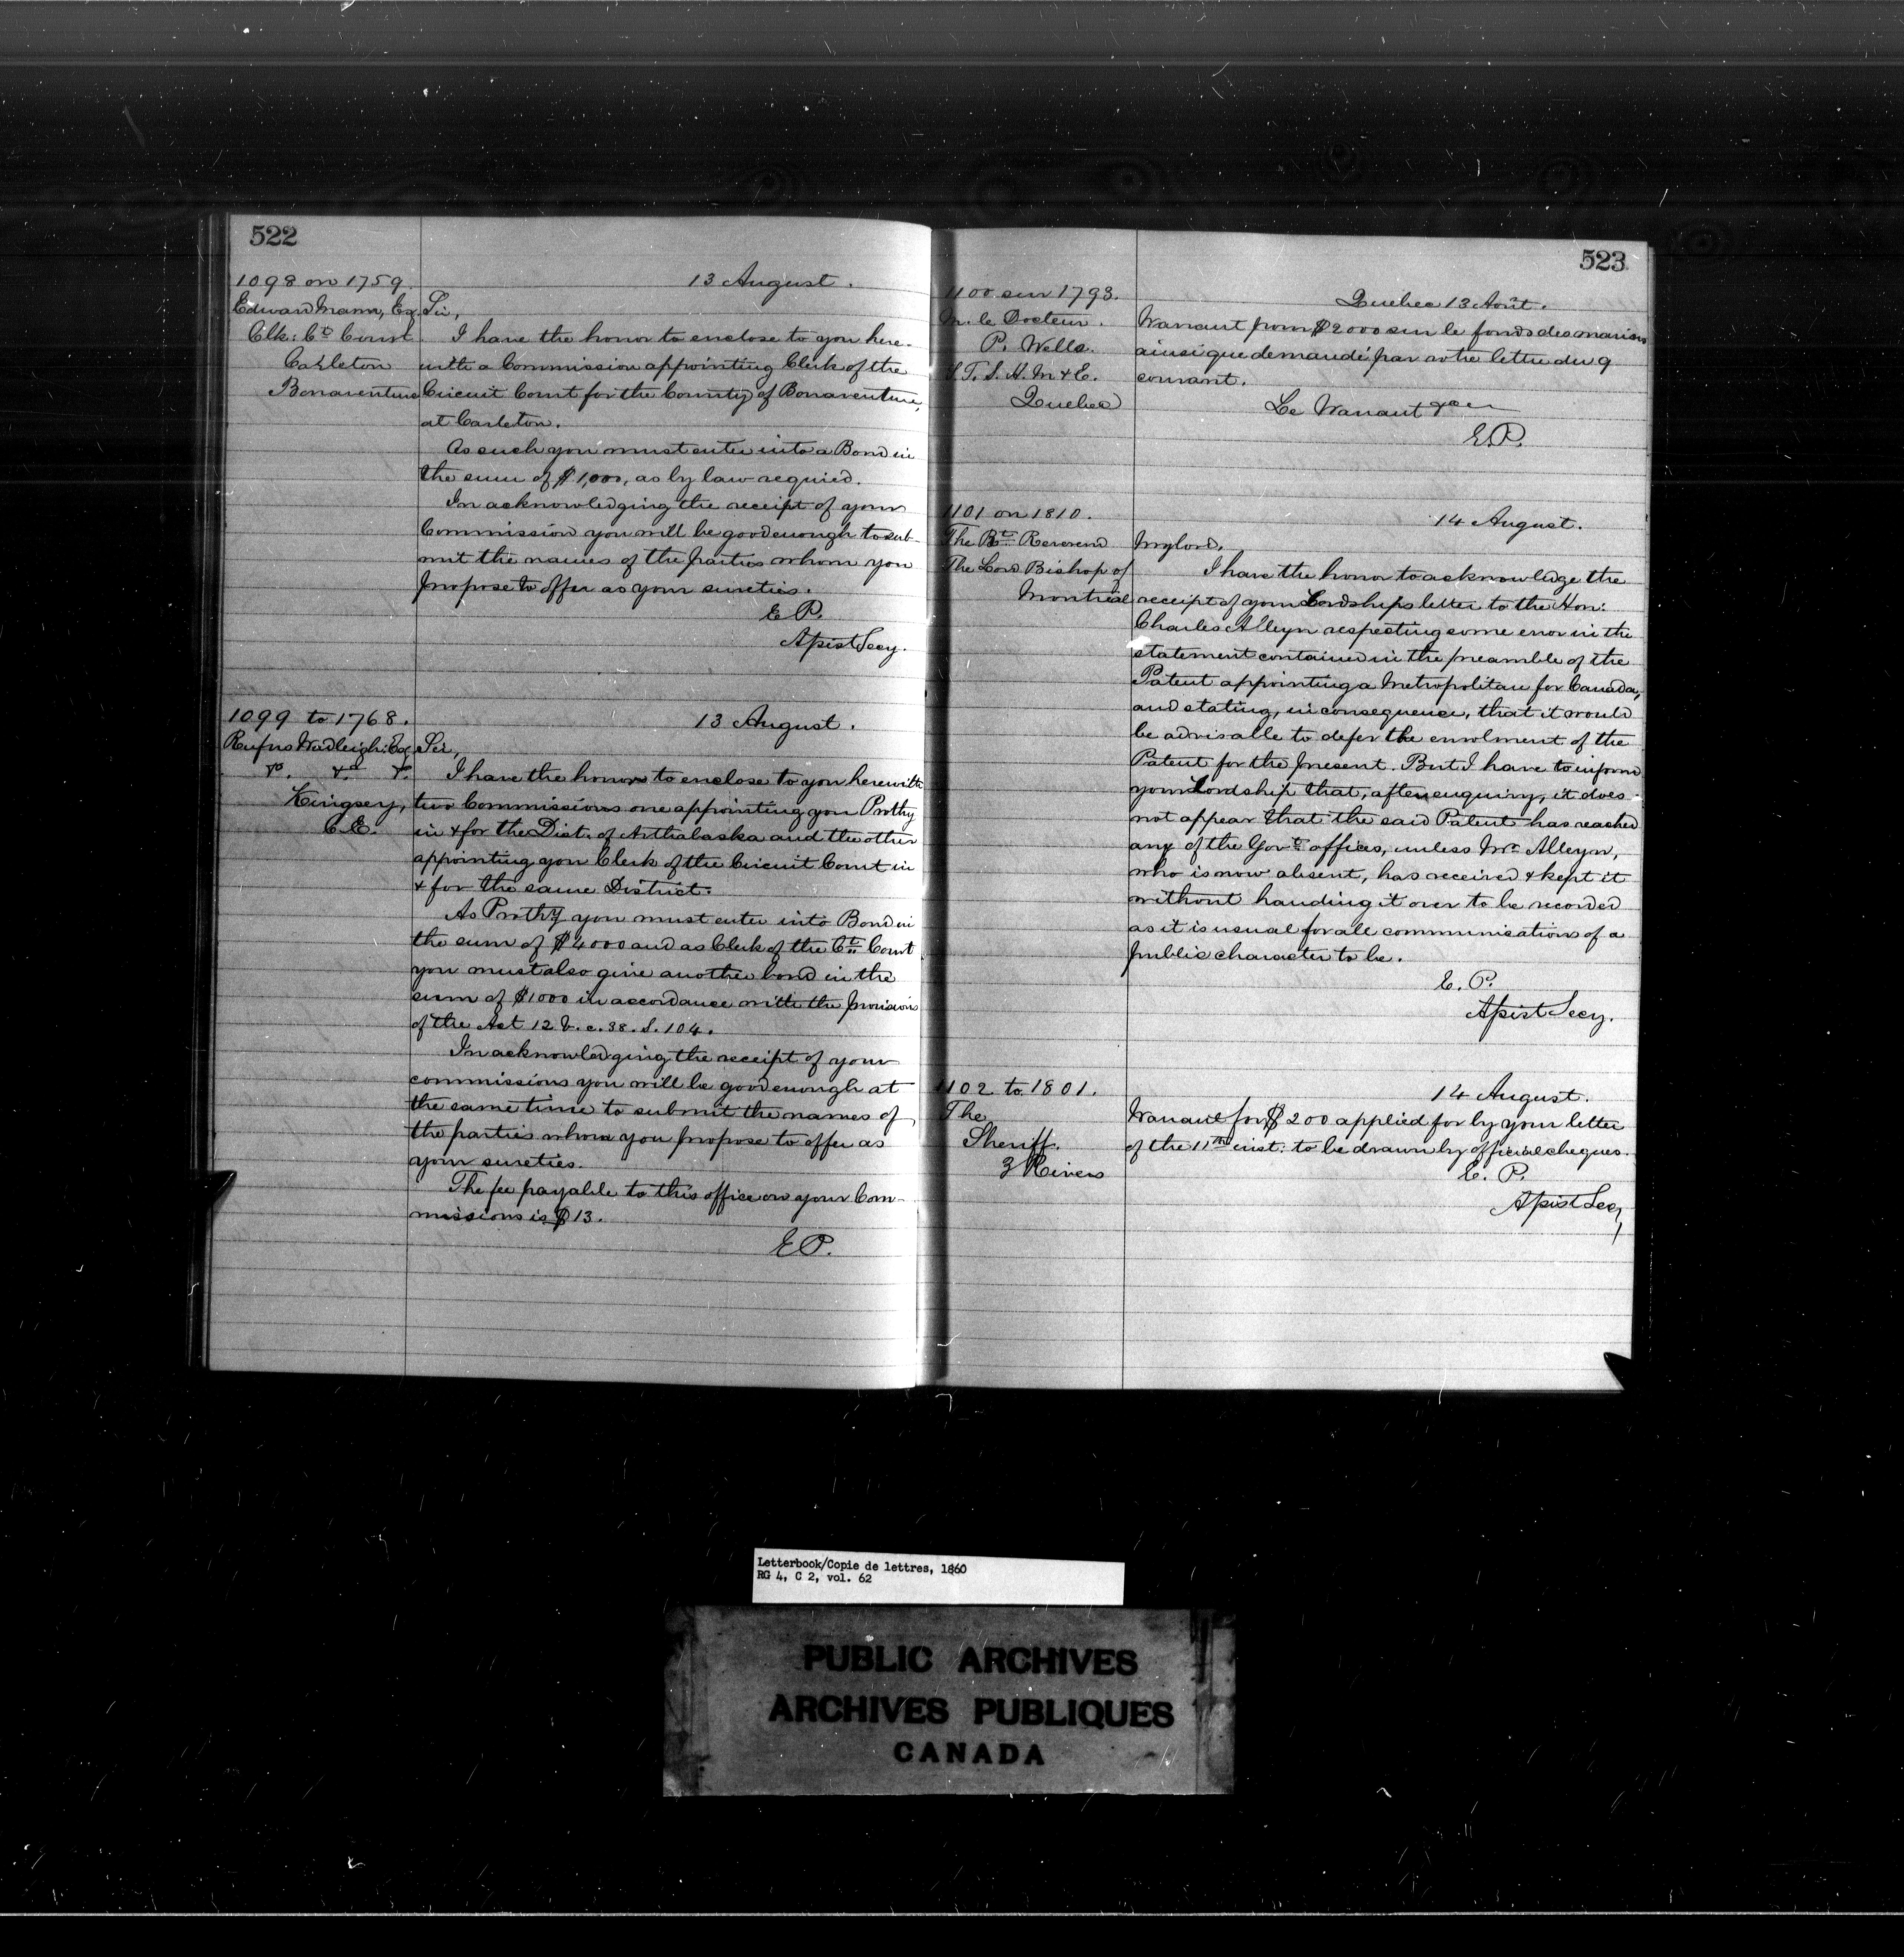 522
1098 on 1759.
Edward Mann, Eq.
Clk: Ct. Court
Carleton
Bonaventure
13 August.
Sir,
I have the honor to enclose to you here-
with a Commission appointing Clerk of the
Circuit Court for the County of Bonaventure,
at Carleton.
As such you must enter into a Bond in
the sum of $1,000, as by law required.
In acknowledging the receipt of your
Commission you will be good enough to sub-
mit the names of the parties whom you
propose to offer as your sureties.
E P.
Assist Secy.
1099 to 1768.
Rufus Wadleigh: Eq
&c. &c. &c.
Kingsey,
C.E.
13 August.
Sir,
I have the honor to enclose to you herewith
two Commissions one appointing you Prothy
in & for the Dist. of Arthabaska and the other
appointing you Clerk of the Circuit Court in
& for the same District.
As Prothy you must enter into Bond in
the sum of $4000 and as Clerk of the Ct. Court
you must also give another bond in the
sum of $1000 in accordance with the provisions
of the Act 12 V. c. 38. S. 104.
In acknowledging the receipt of your
commissions you will be good enough at
the same time to submit the names of
the parties whom you propose to offer as
your sureties.
The fee payable to this office on your Com-
missions is $13.
E P.
523
1100 sur 1793.
M. le Docteur.
P. Wells.
S. T. S. H. M & E.
Quebec
Quebec 13 Août.
Warrant pour $2000 sur le fonds des marins
ainsi que demandé par votre lettre du 9
courant.
Le Warrant
E.P.
1101 on 1810.
The Rt. Reverend
The Lord Bishop of
Montreal
14 August.
My lord,
I have the honor to acknowledge the
receipt of your Lordships letter to the Hon:
Charles Alleyn respecting some error in the
statement contained in the preamble of the
Patent appointing a Metropolitan for Canada,
and stating, in consequence, that it would
be advisable to defer the enrolment of the
Patent for the present. But I have to inform
your Lordship that, after enquiry, it does
not appear that the said Patent has reached
any of the Govt. offices, unless Mr. Alleyn,
who is now absent, has received & kept it
without handing it over to be recorded
as it is usual for all communications of a
public character to be.
E. P.
Assist Secy.
1102 to 1801.
The
Sheriff.
3 Rivers
14 August.
Warrant for $200 applied for by your letter
of the 11th inst: to be drawn by official cheques.
E. P.
Assist Secy
Letterbook/Copie de lettres, 1860
RG 4, C 2, vol. 62
PUBLIC ARCHIVES
ARCHIVES PUBLIQUES
CANADA